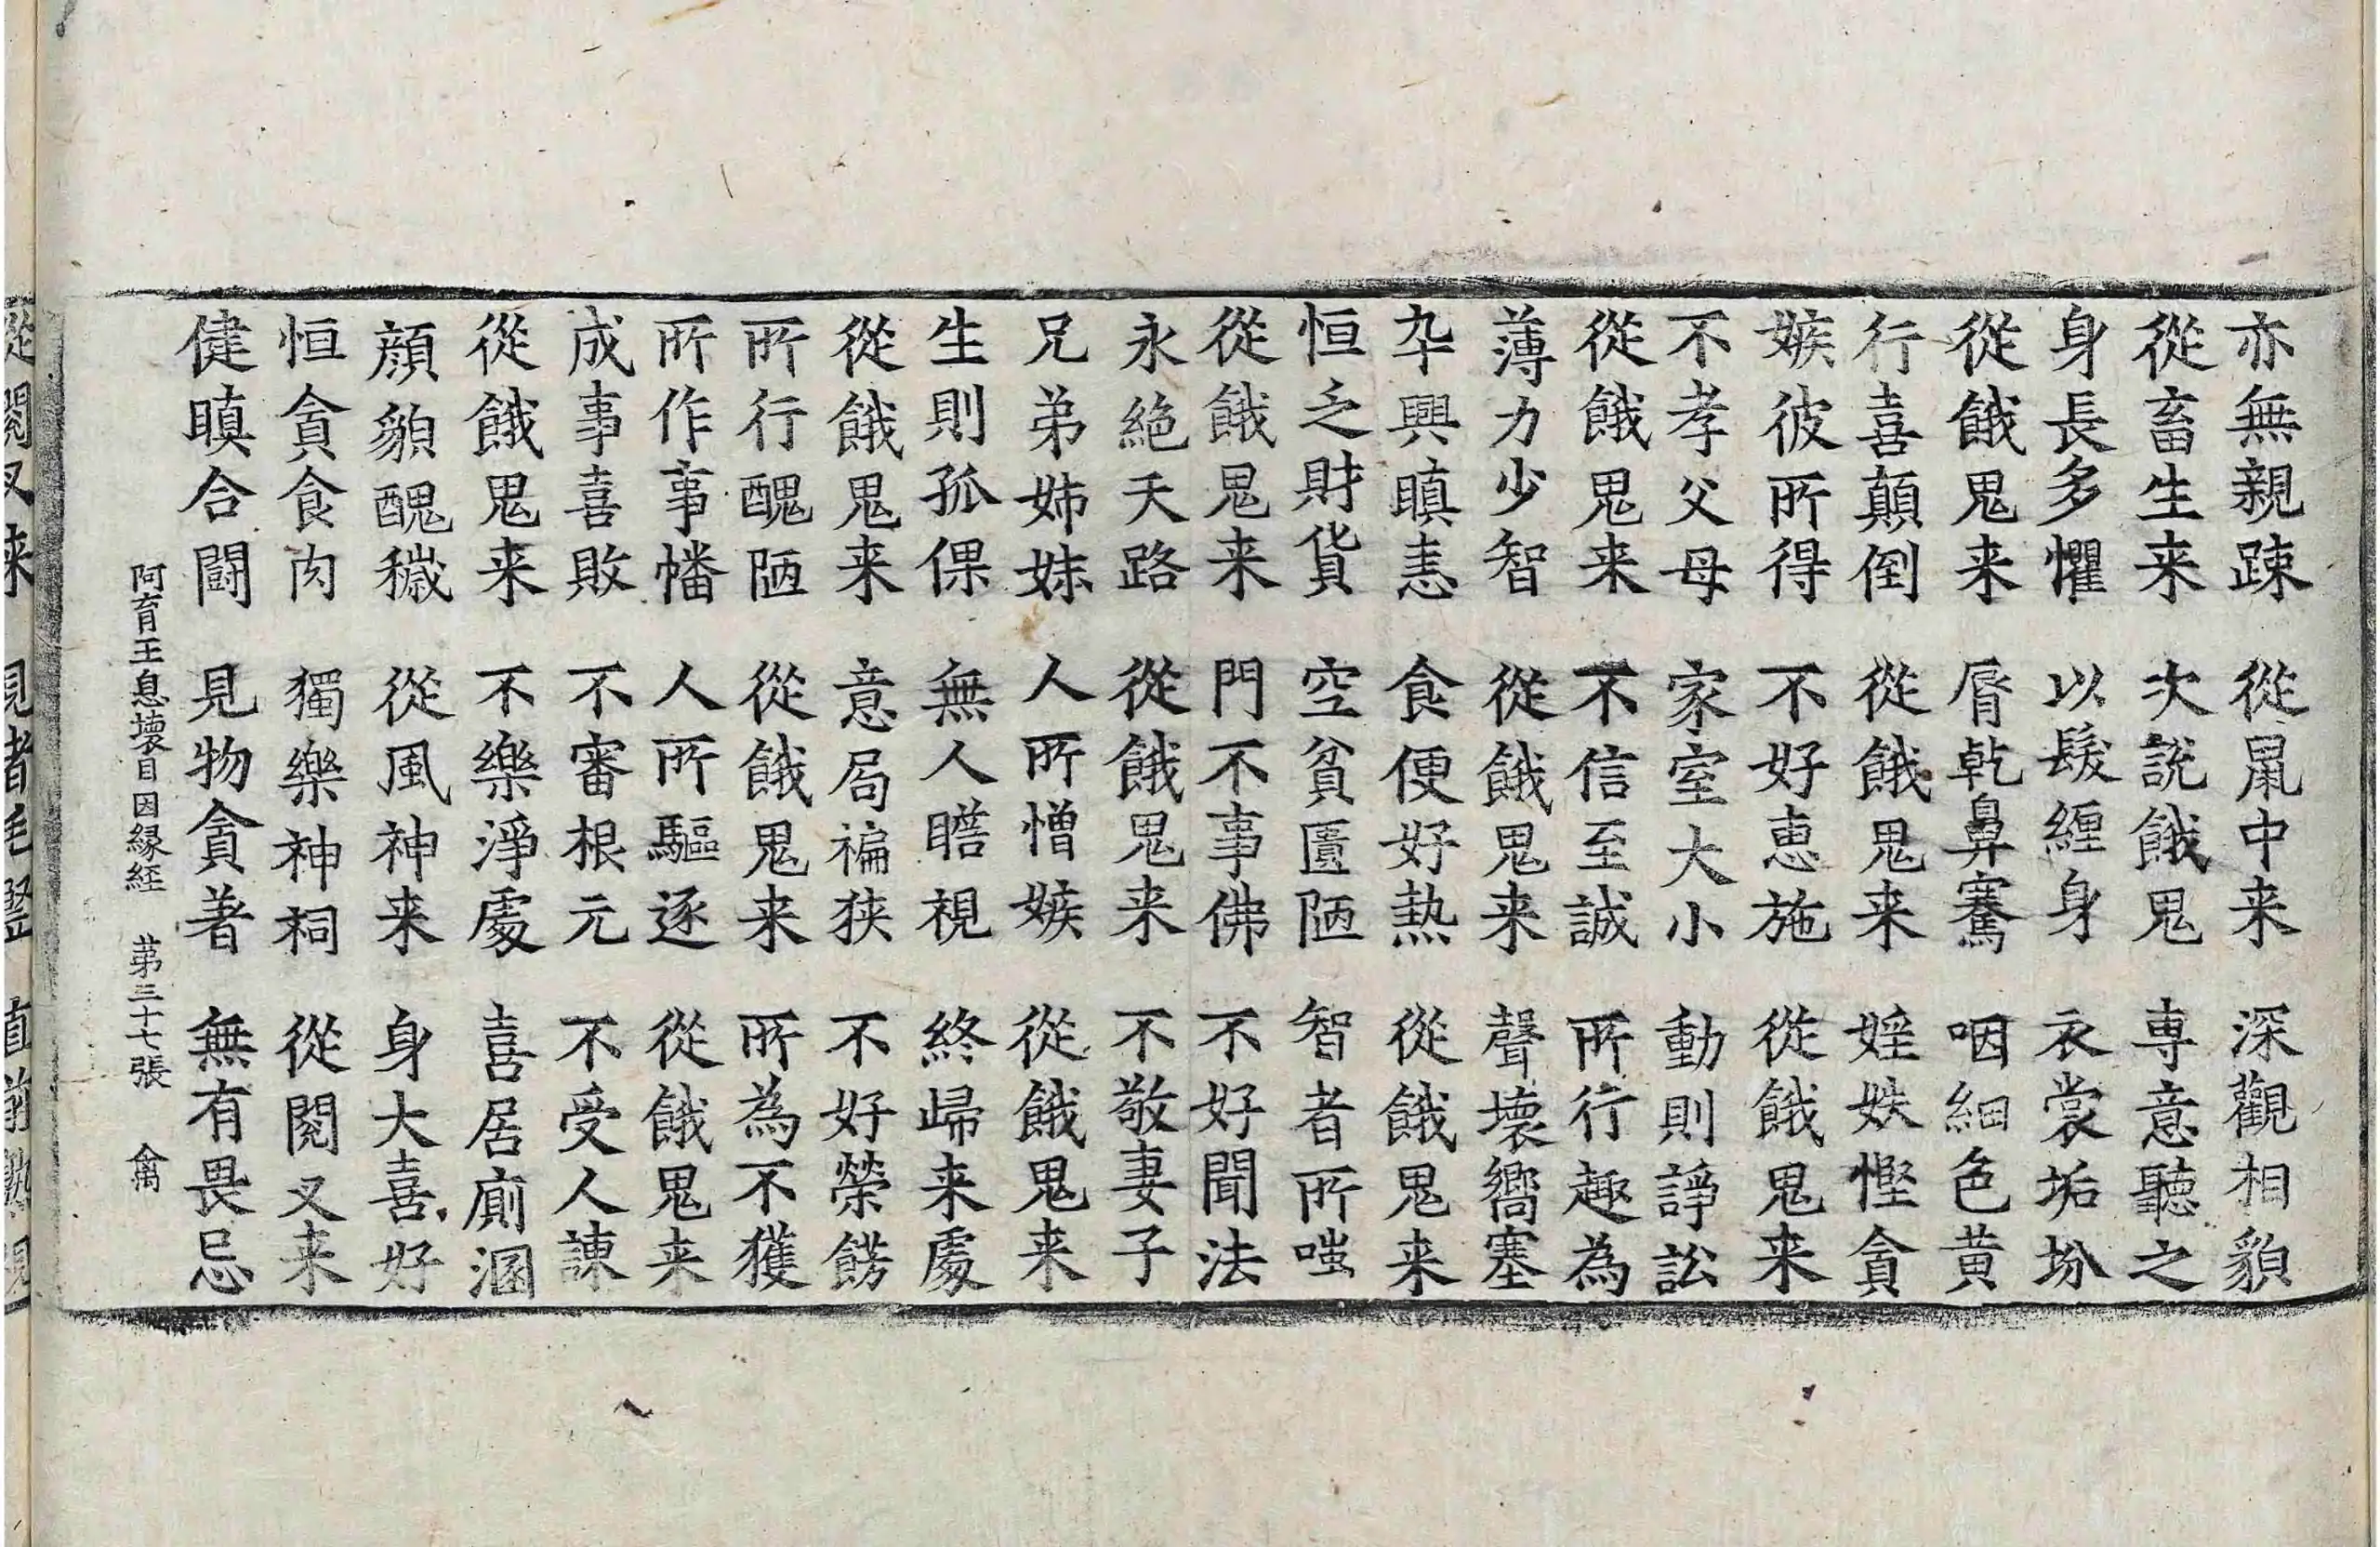 亦無親踈　從鼠中来　深觀相貌
從畜生来　次說餓鬼　専意聽之
身長多懼　以髮纏身　衣裳垢坋
從餓鬼来　脣乾鼻騫　咽細色黄
行喜顛倒　從餓鬼来　婬妷慳貪
嫉彼所得　不好恵施　從餓鬼来
不孝父母　家室大小　動則諍訟
從餓鬼来　不信至誠　所行趣為
薄力少智　從餓鬼来　聲壊嚮塞
卒興瞋恚　食便好熱　從餓鬼来
恒乏財貨　空貧匱陋　智者所嗤
從餓鬼来　門不事佛　不好聞法
永絶天路　從餓鬼来　不敬妻子
兄弟姊妹　人所憎嫉　從餓鬼来
生則孤倮　無人瞻視　終歸来處
從餓鬼来　意局褊狭　不好榮餝
所行醜陋　從餓鬼来　所為不獲
所作事幡　人所驅逐　從餓鬼来
成事喜敗　不審根元　不受人諫
從餓鬼来　不樂淨處　喜居廁溷
顔貌醜穢　從風神来　身大喜好
恒貪食肉　獨樂神祠　從閱叉来
健瞋合鬪　見物貪著　無有畏忌
阿育王息壊目因縁経　苐三十七張　禽